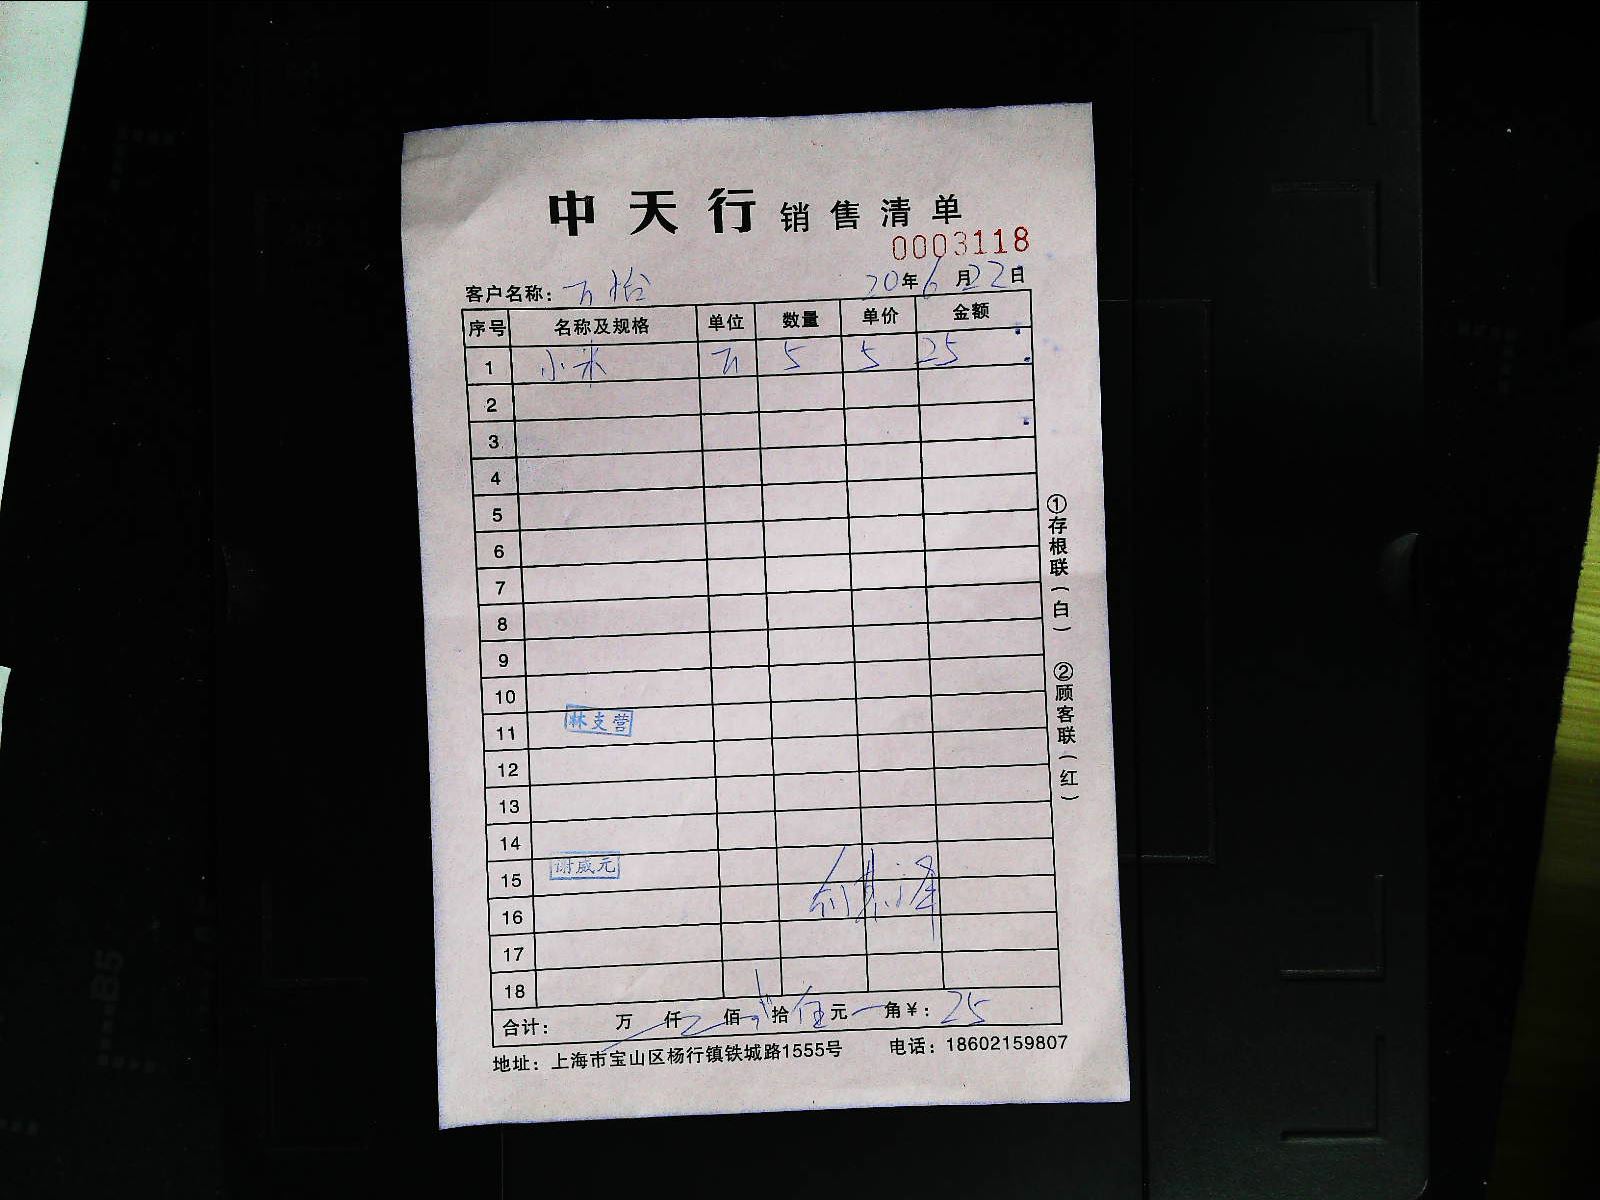 中天行销售清单
0003118
客户名称：万怡 20年6月22日
序号 名称及规格 单位 数量 单价 金额
1 小米 斤 5 5 25
2
3
4
5
6
7
8
9
10
11 林支营
12
13
14
15 谢威元
16
17
18
合计： 万 仟 佰 贰拾伍元 角￥：25
地址：上海市宝山区杨行镇铁城路1555号 电话：18602159807
①存根联（白） ②顾客联（红）